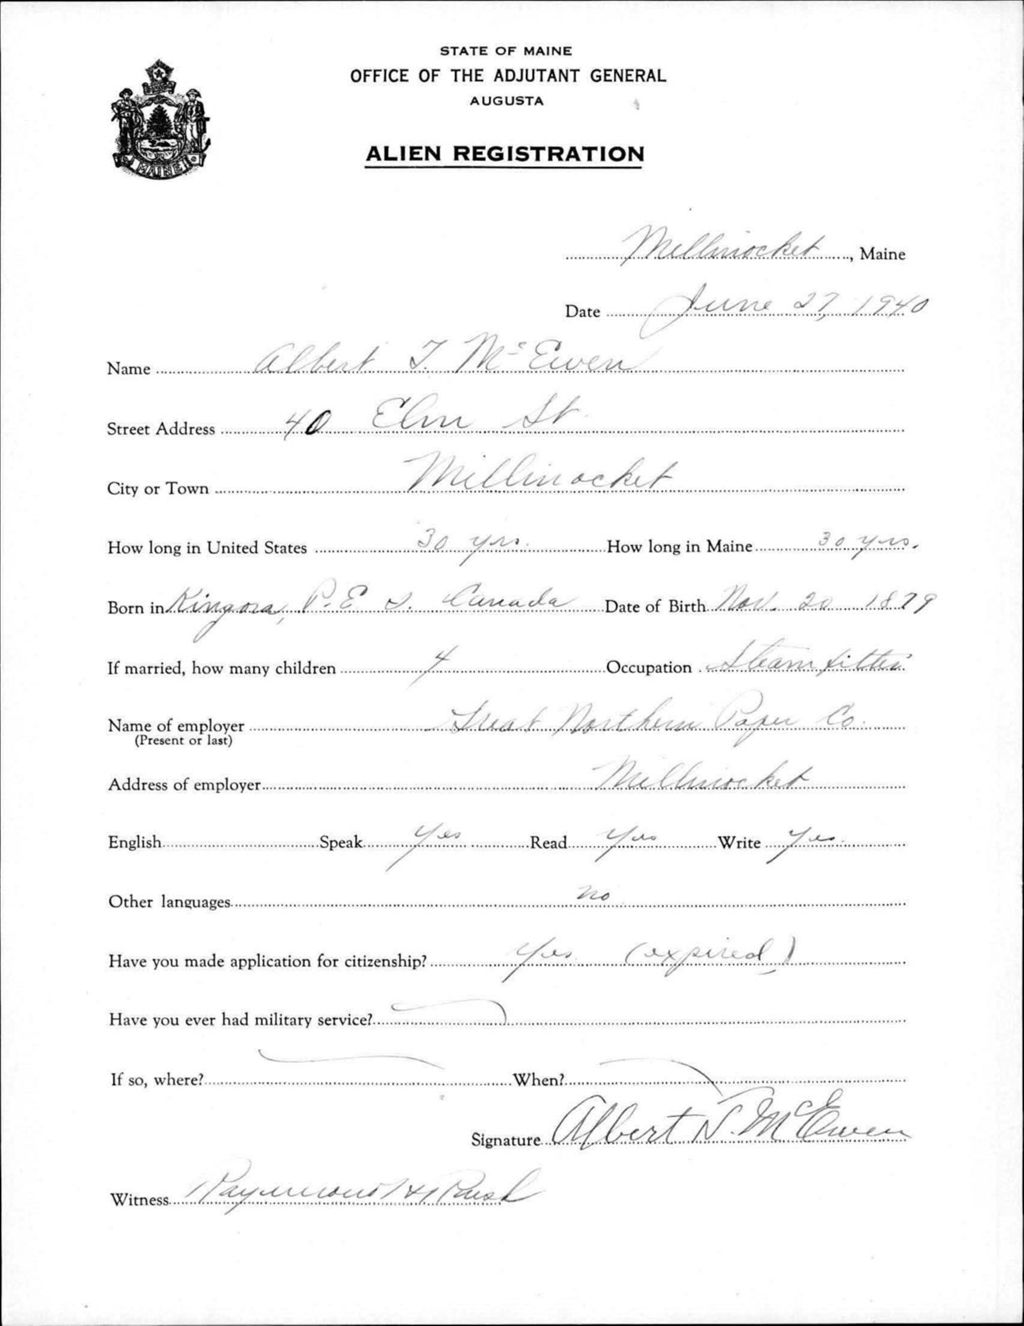 STATE OF MAINE
OFFICE OF THE ADJUTANT GENERAL
AUGUSTA
ALIEN REGISTRATION
MAINE
Millinocket, Maine
Date June 27, 1940
Name Albert T. McEwen
Street Address 40 Elm St
City or Town Millinocket
How long in United States 30 yrs. How long in Maine 30 yrs.
Born in Kingora, P. E I. Canada Date of Birth Nov. 20 1879
If married, how many children 4 Occupation Steam fitter
Name of employer Great Northern Paper Co.
(Present or last)
Address of employer Millinocket
English Speak Yes Read Yes Write Yes
Other languages no
Have you made application for citizenship? Yes (expired)
Have you ever had military service?
If so, where? When?
Signature Albert T. McEwen
Witness Raymond H